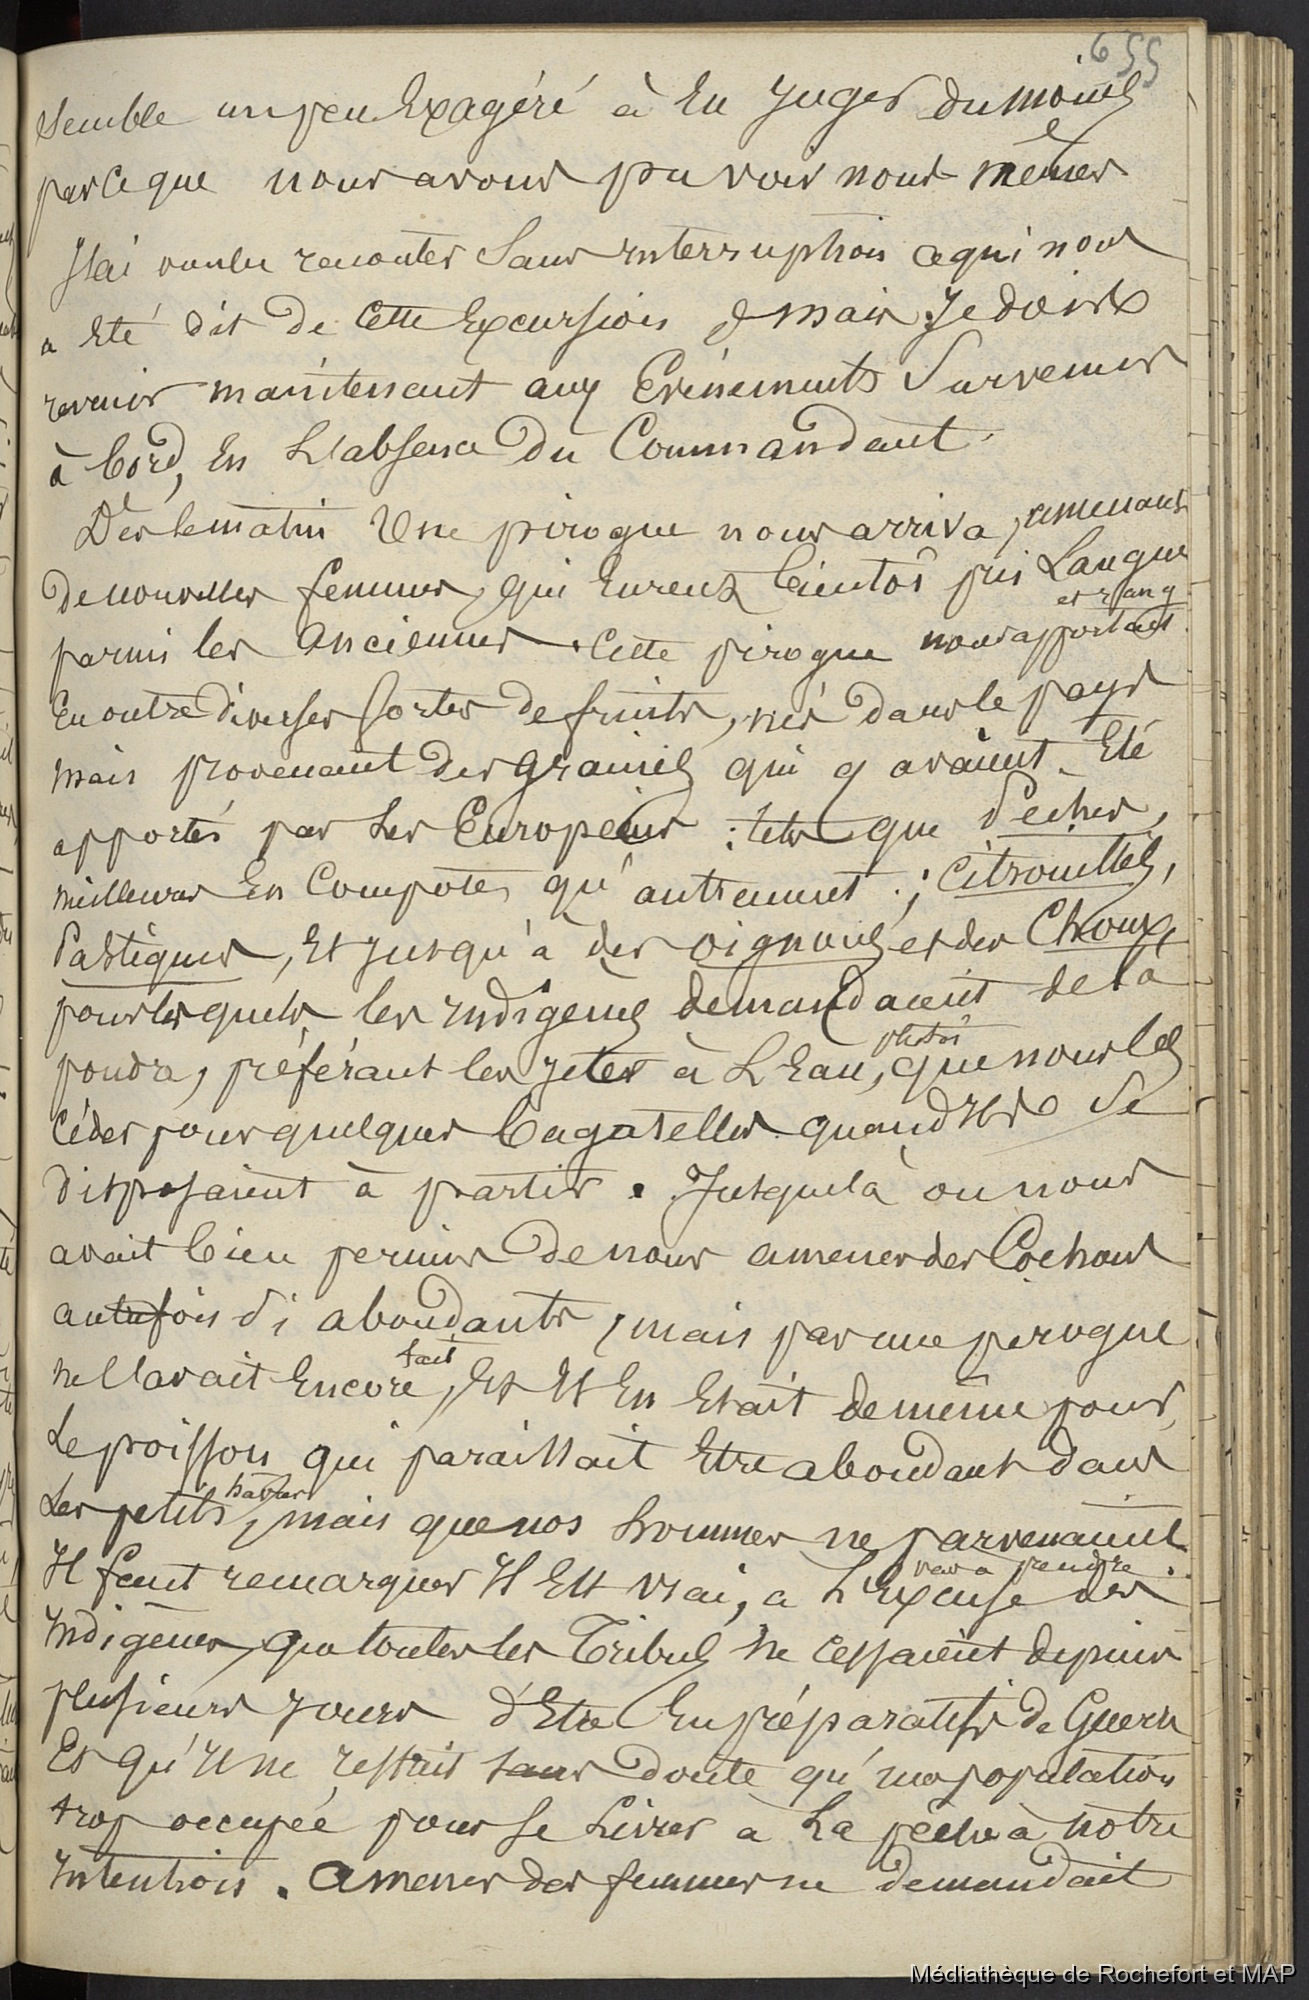 655
semble un peu Exagéré à En Juger du moins
par ce que nous avons pu voir nous-mêmes
J'ai voulu raconter Sans interruption ce qui nous
a Eté dit de Cette Excursion mais Je dois
revenir maintenant aux Evénements Survenus
à bord, En L'absence Du Commandant.
Dès le matin Une pirogue nous arriva, amenant
De nouvelles femmes, qui Eurent bientôt pris Langue
et rang
parmi les Anciennes. Cette pirogue nous apportait
En outre Diverses Sortes De fruits, nés dans le pays
mais provenant des graines qui y avaient Eté
apportés par Les Européens : tels que Pêches,
meilleures En Compote, qu'autrement ; Citrouilles,
Pastèques, Et jusqu'à des oignons et des Choux,
pour lesquels les indigènes demandaient de la
poudre, préférant les jeter à L'Eau, plutôt que nous les
Céder pour quelques bagatelles quand Ils Se
disposaient à partir. Jusque là on nous
avait bien permis De nous amener des Cochons
autrefois Si abondants, mais pas une pirogue
ne l'avait Encore fait, Et Il En Etait de même pour
Le poisson qui paraissait Etre abondant dans
Les petits havres, mais que nos hommes ne parvenaient
pas à prendre.
Il faut remarquer Il Est vrai, a L'Excuse des
Indigènes, que toutes les Tribus ne cessaient depuis
plusieurs jours d'Etre En préparatifs de Guerre
Et qu'Il ne restait sans Doute qu'une population
trop occupée pour se Livrer à La pêche à notre
Intention. Amener des femmes ne demandait
Médiathèque de Rochefort et MAP